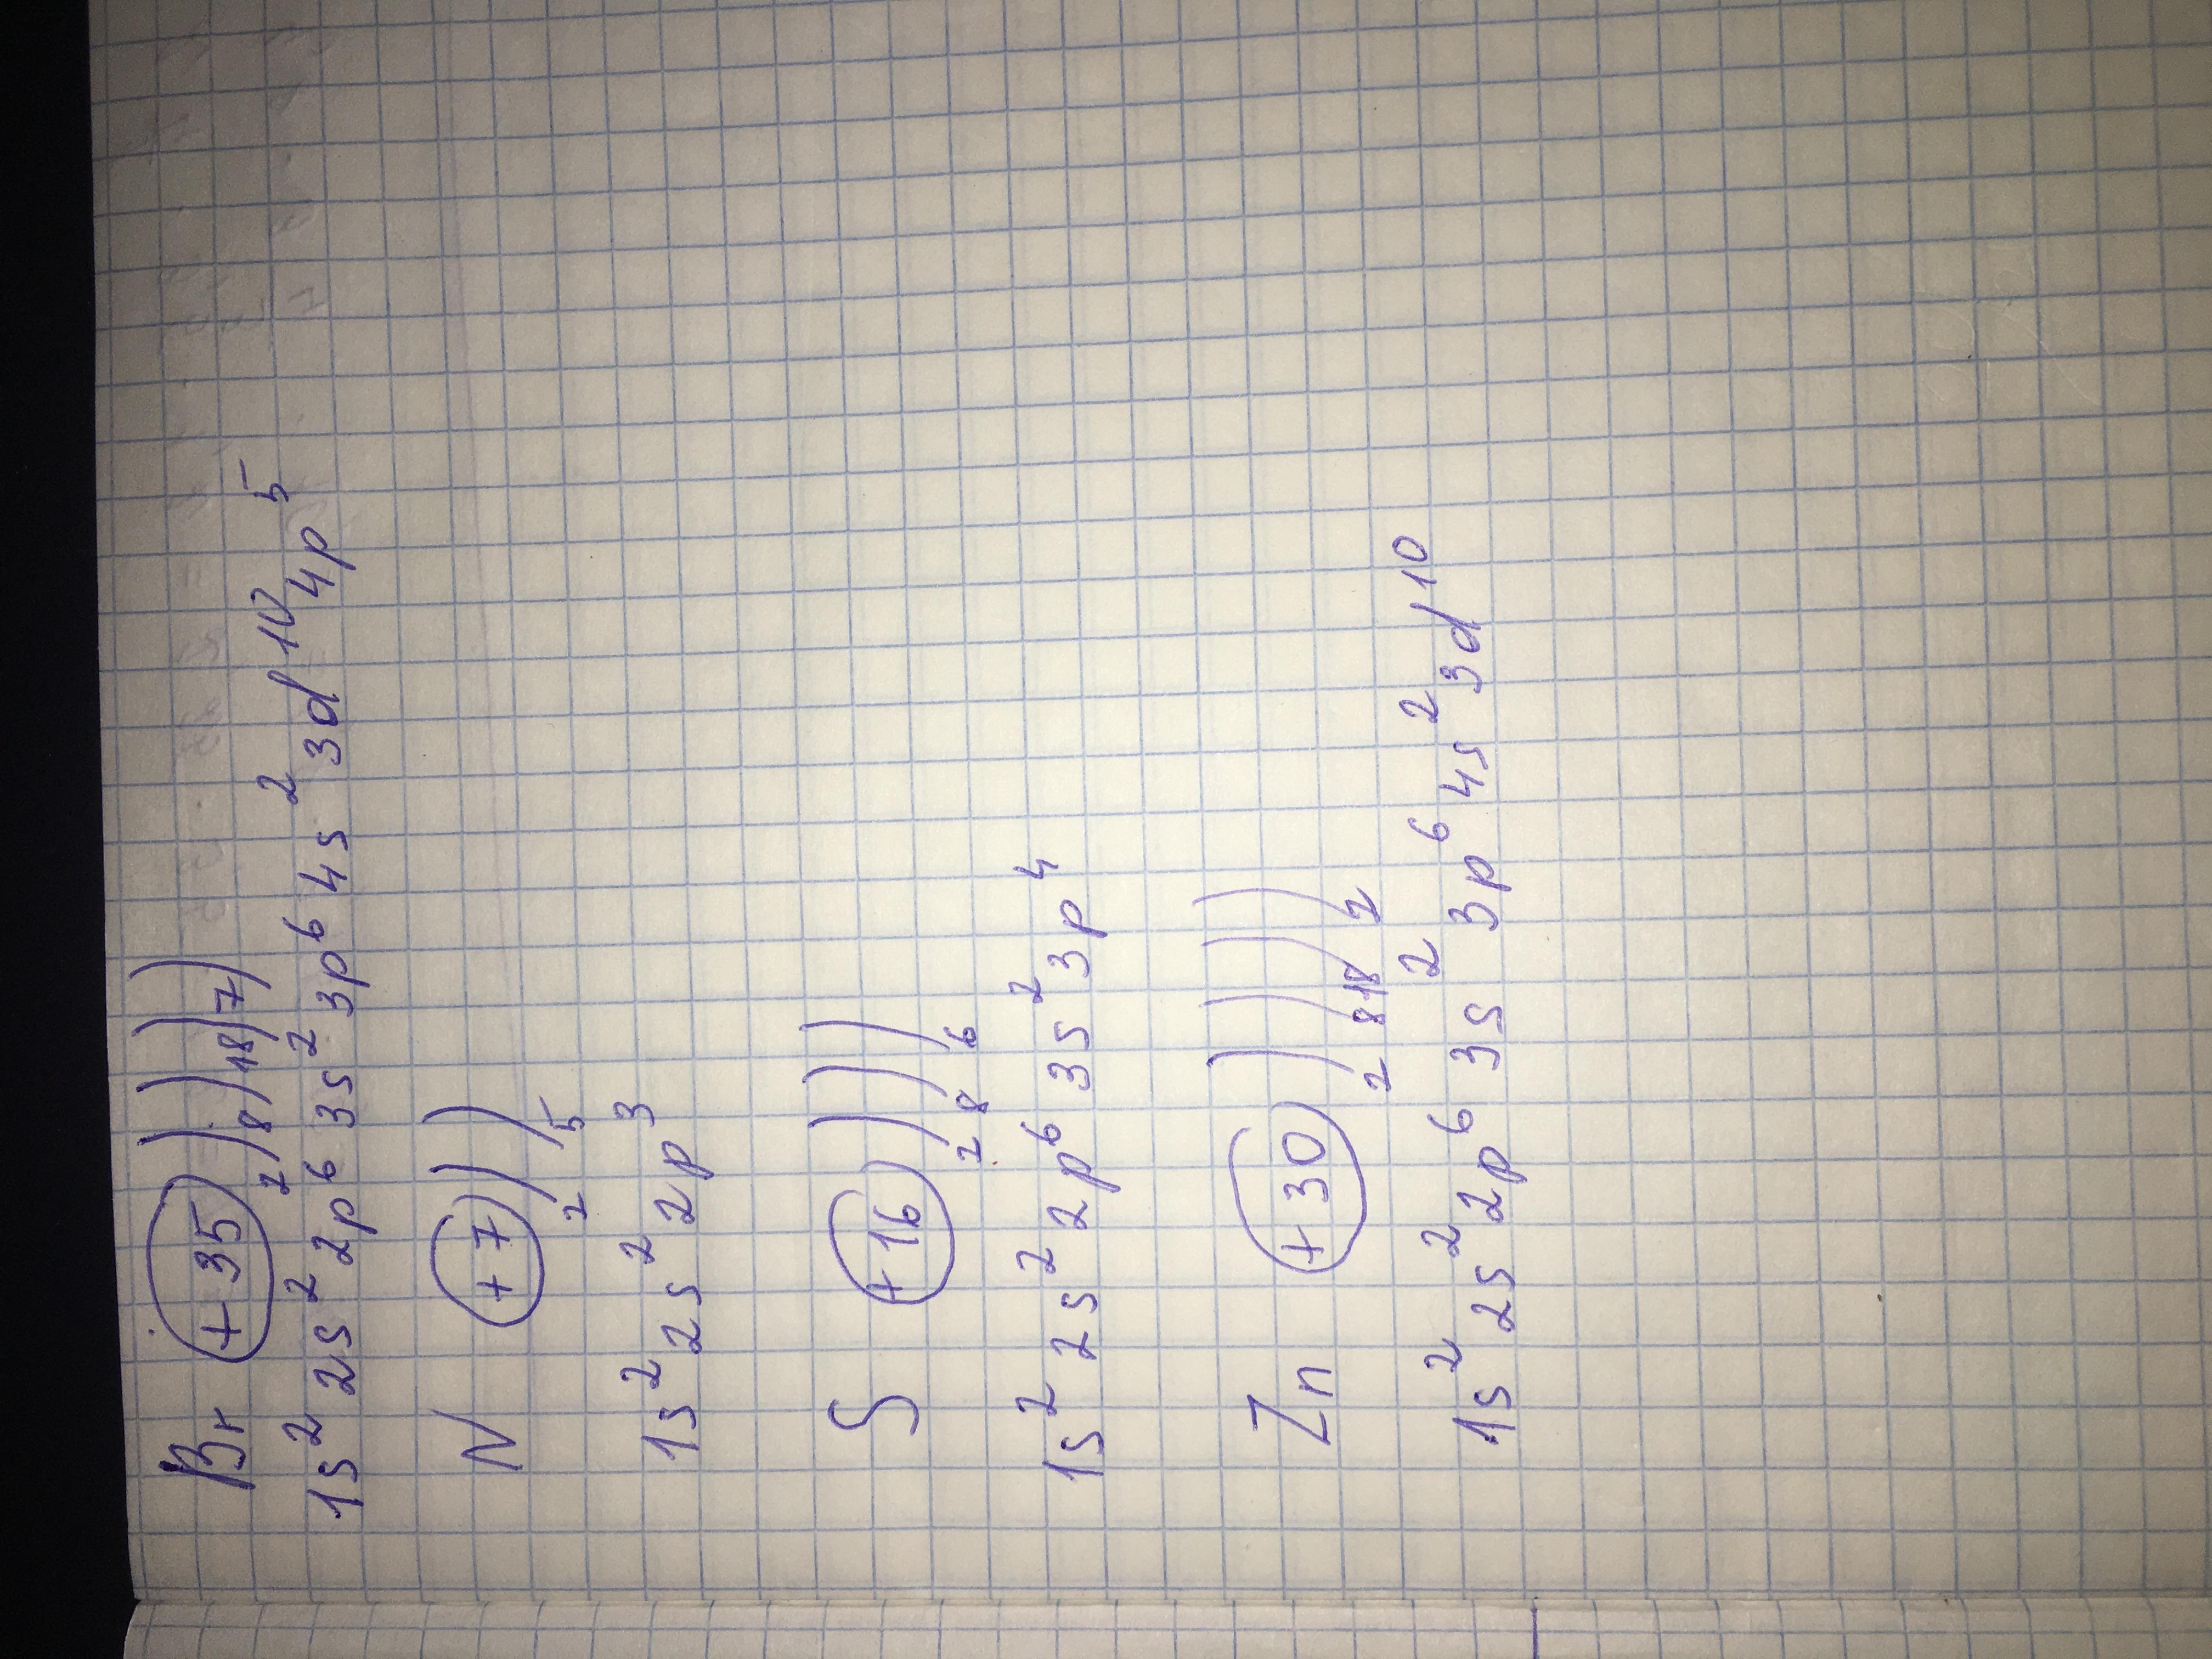 Br +35 ) ) ) ) 2 8 18 7
1s² 2s² 2p⁶ 3s² 3p⁶ 4s² 3d¹⁰ 4p⁵
N +7 ) ) 2 5
1s² 2s² 2p³
S +16 ) ) ) 2 8 6
1s² 2s² 2p⁶ 3s² 3p⁴
Zn +30 ) ) ) ) 2 8 18 2
1s² 2s² 2p⁶ 3s² 3p⁶ 4s² 3d¹⁰